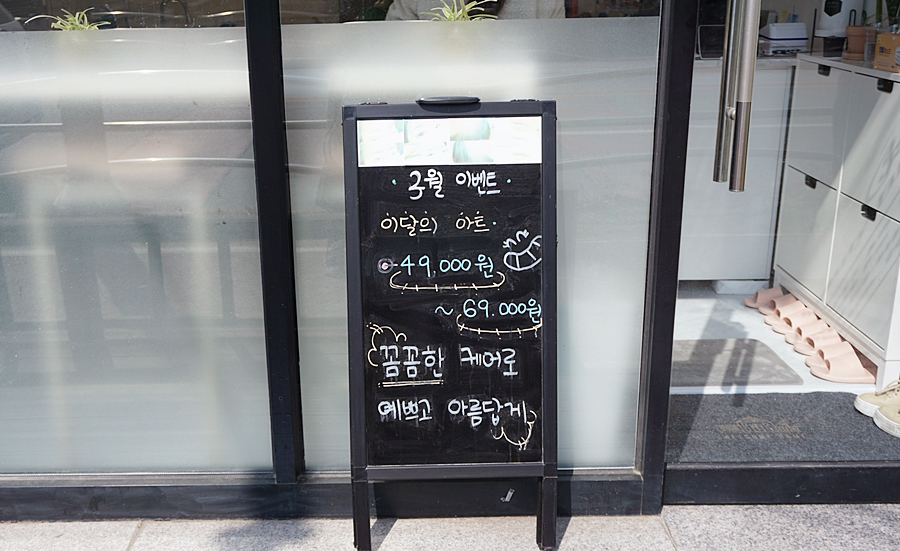 3월 이벤트
이달의 아트
49,000원
~ 69.000원
꼼꼼한 케어로
예쁘고 아름답게